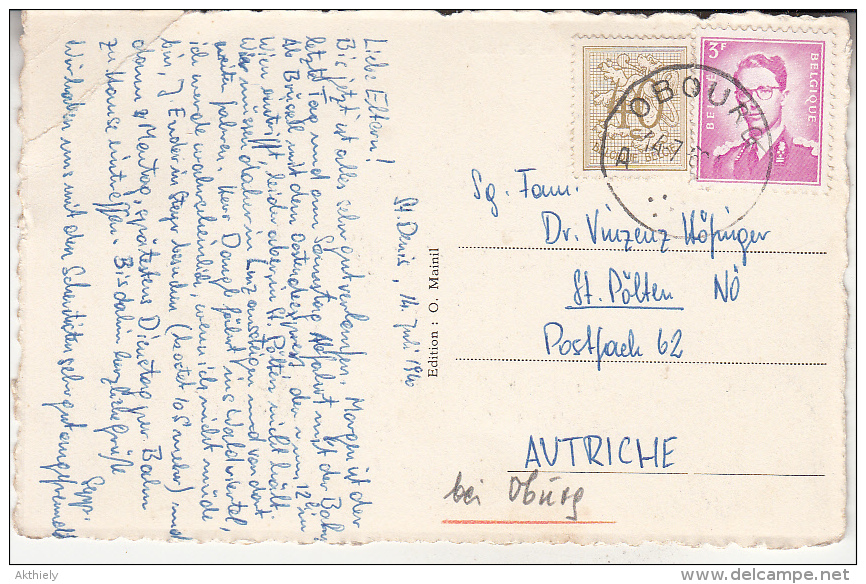 St. Denis, 14. Juli 1960
Liebe Eltern!
Bis jetzt ist alles sehr gut verlaufen. Morgen ist der
letzte Tag und am Samstag Abfahrt mit der Bahn
Ab Brüssel mit dem Ostendeexpress, der um 12h in
Wien eintrifft, leider aber in St. Pölten nicht hält.
Wir müssen daher in Linz aussteigen und von dort
weiter fahren. Herr Dangl fährt ins Waldviertel,
ich werde wahrscheinlich, wenn ich nicht müde
bin, J. in Steyr besuchen (kostet 10 S mehr) und
dann Montag, spätestens Dienstag per Bahn
zu Hause eintreffen. Bis dahin herzliche Grüße
Sepp.
Wir haben uns mit den sehr gut angefreundet
Edition : O. Mainil
OBOURG
A
14-7
BELGIE BELGIQUE
3F
10
Sg. Fam.
Dr. Vinzenz Höfinger
St. Pölten NÖ
Postfach 62
AUTRICHE
bei Obourg
Akthiely
delcampe.net